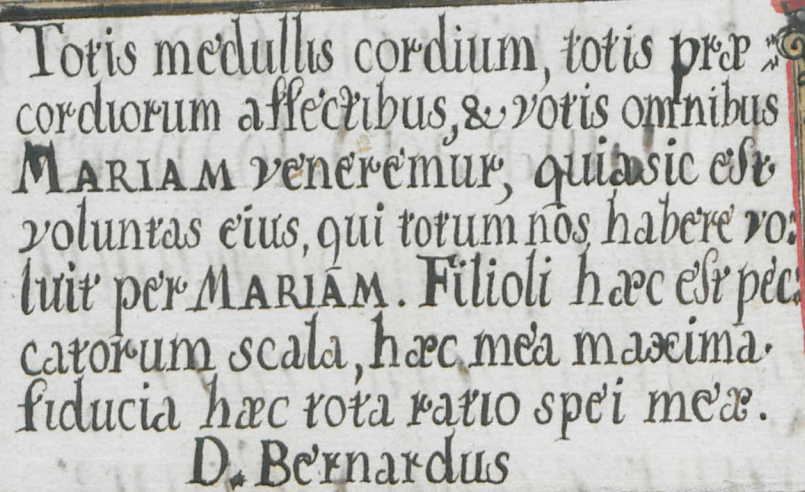 Totis medullis cordium, totis præ:
cordiorum affectibus, & votis omnibus
MARIAM veneremur, quia sic est
voluntas eius, qui totum nos habere vo:
luit per MARIAM. Filioli hæc est pec:
catorum scala, hæc mea maxima
fiducia hæc tota ratio spei meæ.
D. Bernardus